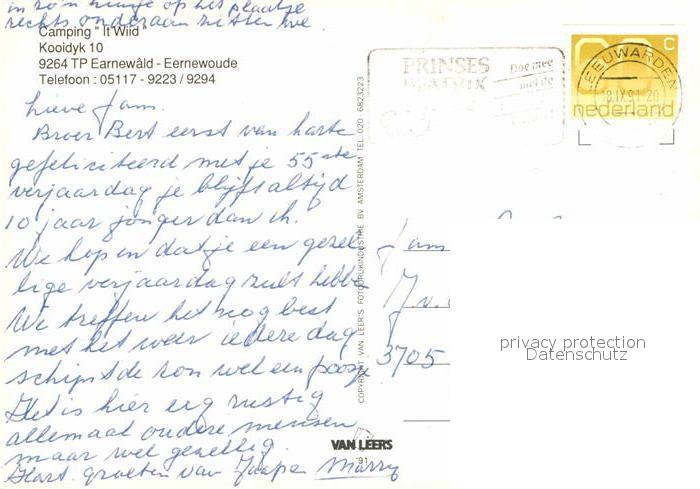 in zo'n huisje op het plaatje
rechts onderaan zitten we
Camping "It Wiid"
Kooidyk 10
9264 TP Earnewâld - Eernewoude
Telefoon : 05117 - 9223 / 9294
Lieve Fam.
Broer Bert eerst van harte
gefeliciteerd met je 55ste
verjaardag je blijft altijd
10 jaar jonger dan ik.
We hopen dat je een gezel
lige verjaardag zult hebben
We treffen het nog best
met het weer iedere dag
schijnt de zon wel een poosje
Het is hier erg rustig
allemaal oudere mensen
maar wel gezellig.
Hart. groeten van Jaap en Marry
COPYRIGHT VAN LEER'S FOTODRUKINDUSTRIE BV AMSTERDAM TEL. 020 - 6823223
VAN LEERS
'91
PRINSES
BEATRIX
Doe mee
met de
LEEUWARDEN
18.IX.91.20
c
nederland
Fam
J. v.
3705
privacy protection
Datenschutz